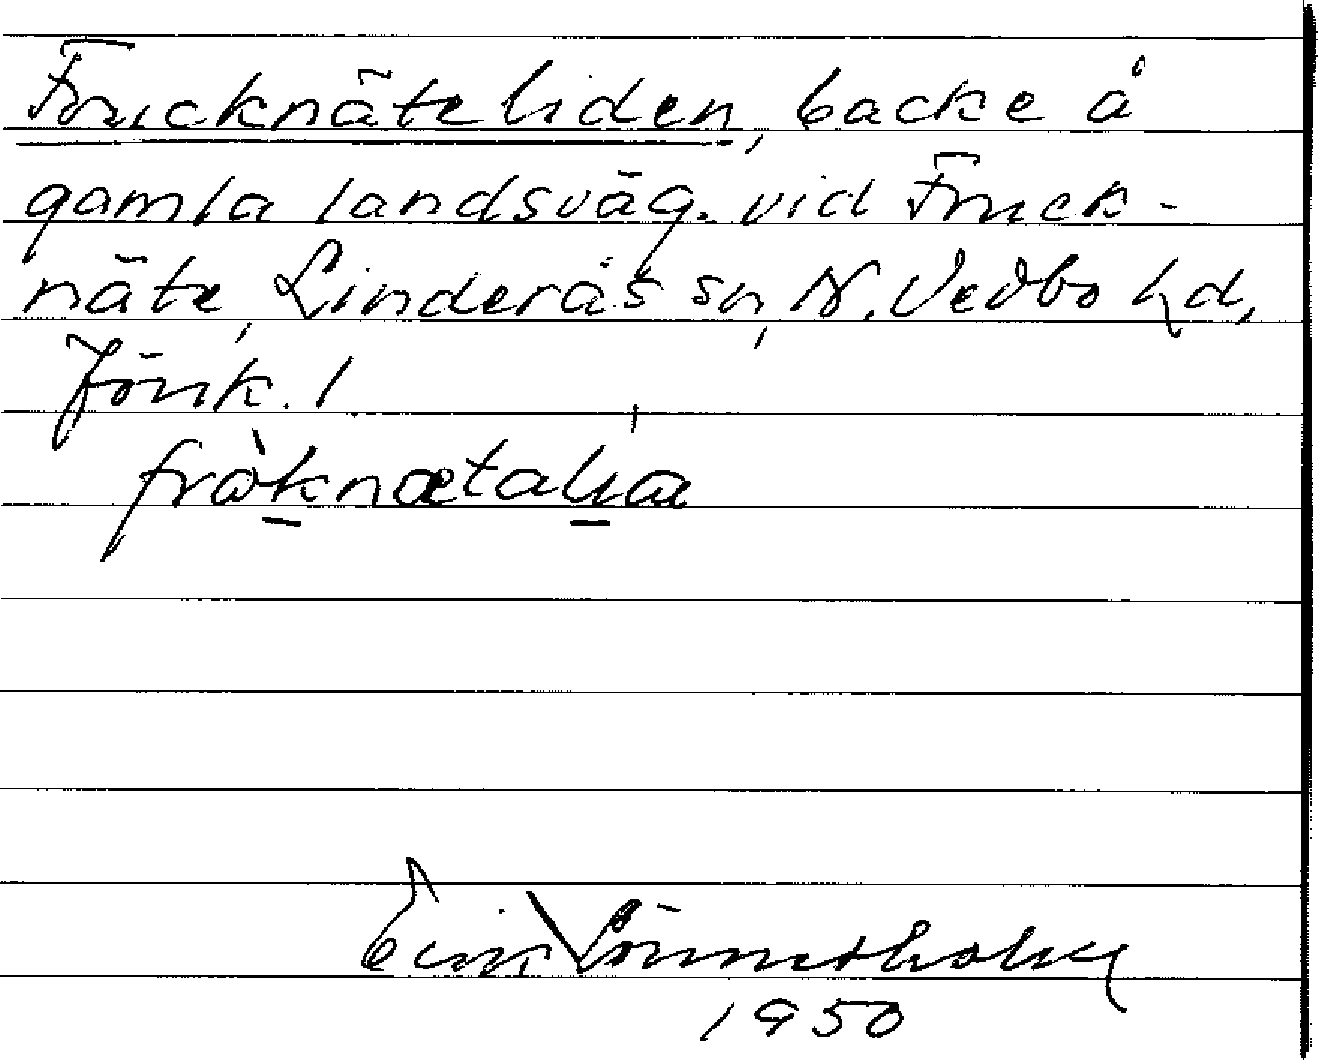 Frucknäteliden, backe å
gamla landsväg. vid Fruck-
näte, Linderås sn, N. Vedbo hd,
Jönk. l
fròknætaliɑ
Erik Lönnerholm
1950